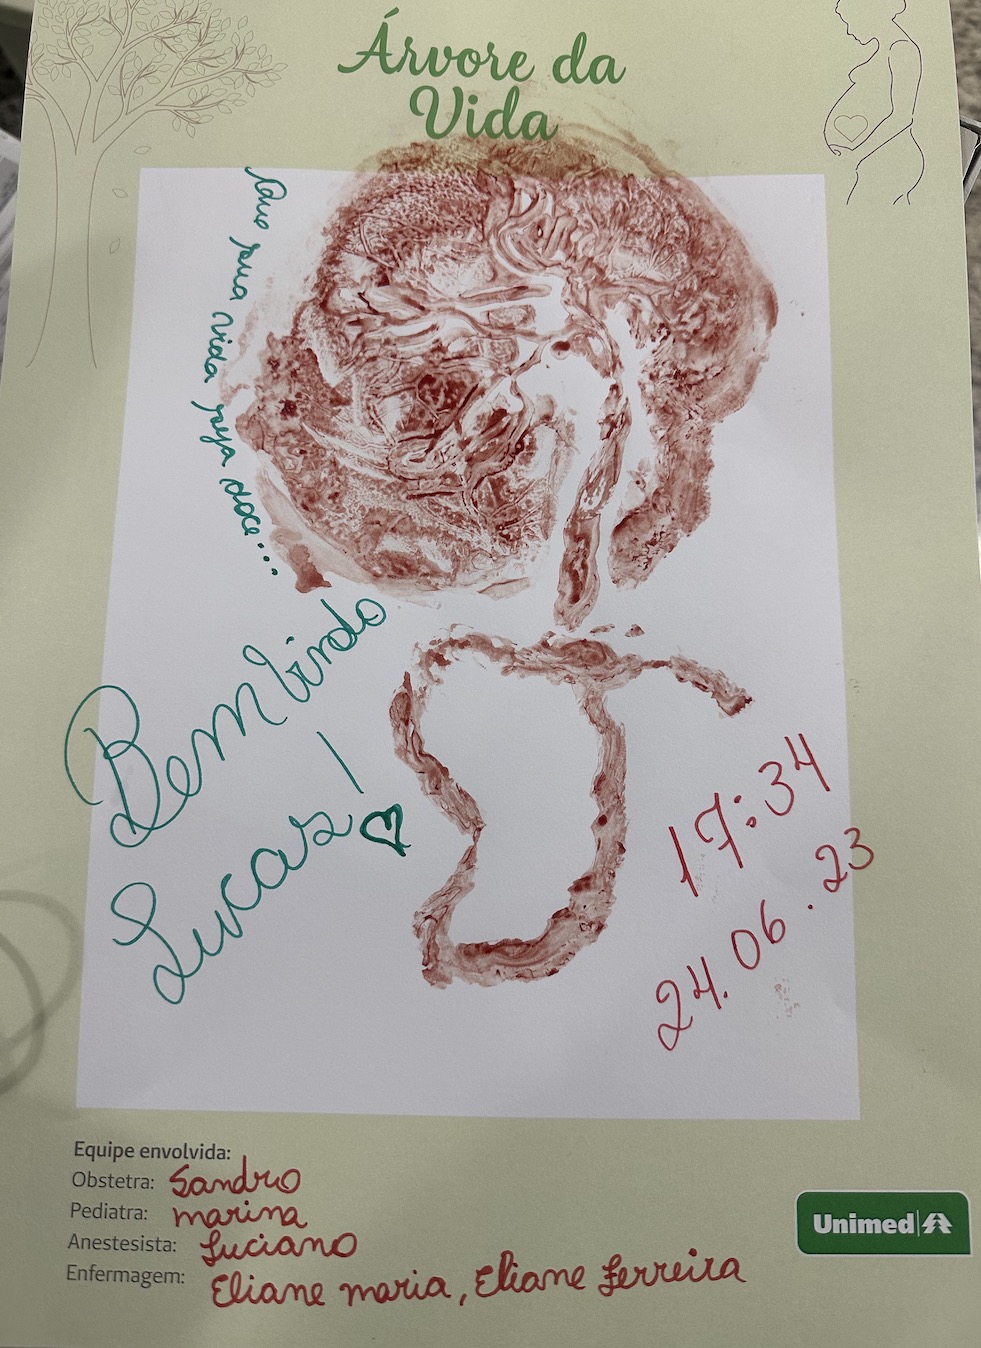 Árvore da
Vida
Que sua vida seja doce....
Bem Vindo
Lucas!
17:34
24.06.23
Equipe envolvida:
Obstetra: Sandro
Pediatra: marina
Anestesista: Luciano
Enfermagem: Eliane maria, Eliane Ferreira
Unimed